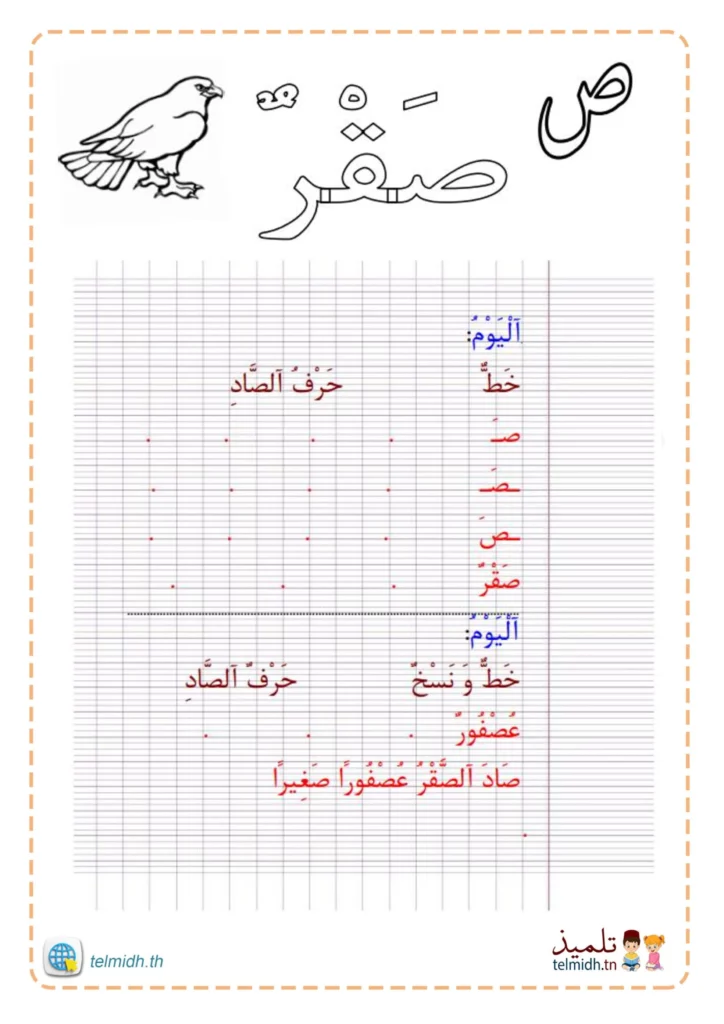 ص
صَقْرٌ
اَلْيَوْمُ:
خَطٌّ حَرْفُ اَلصَّادِ
صَـ . . . .
ـصَـ . . . .
ـصَ . . . .
صَقْرٌ . . .
اَلْيَوْمُ:
خَطٌّ وَ نَسْخٌ حَرْفُ اَلصَّادِ
عُصْفُورٌ . . .
صَادَ اَلصَّقْرُ عُصْفُورًا صَغِيرًا
.
تلميذ
telmidh.tn
telmidh.th